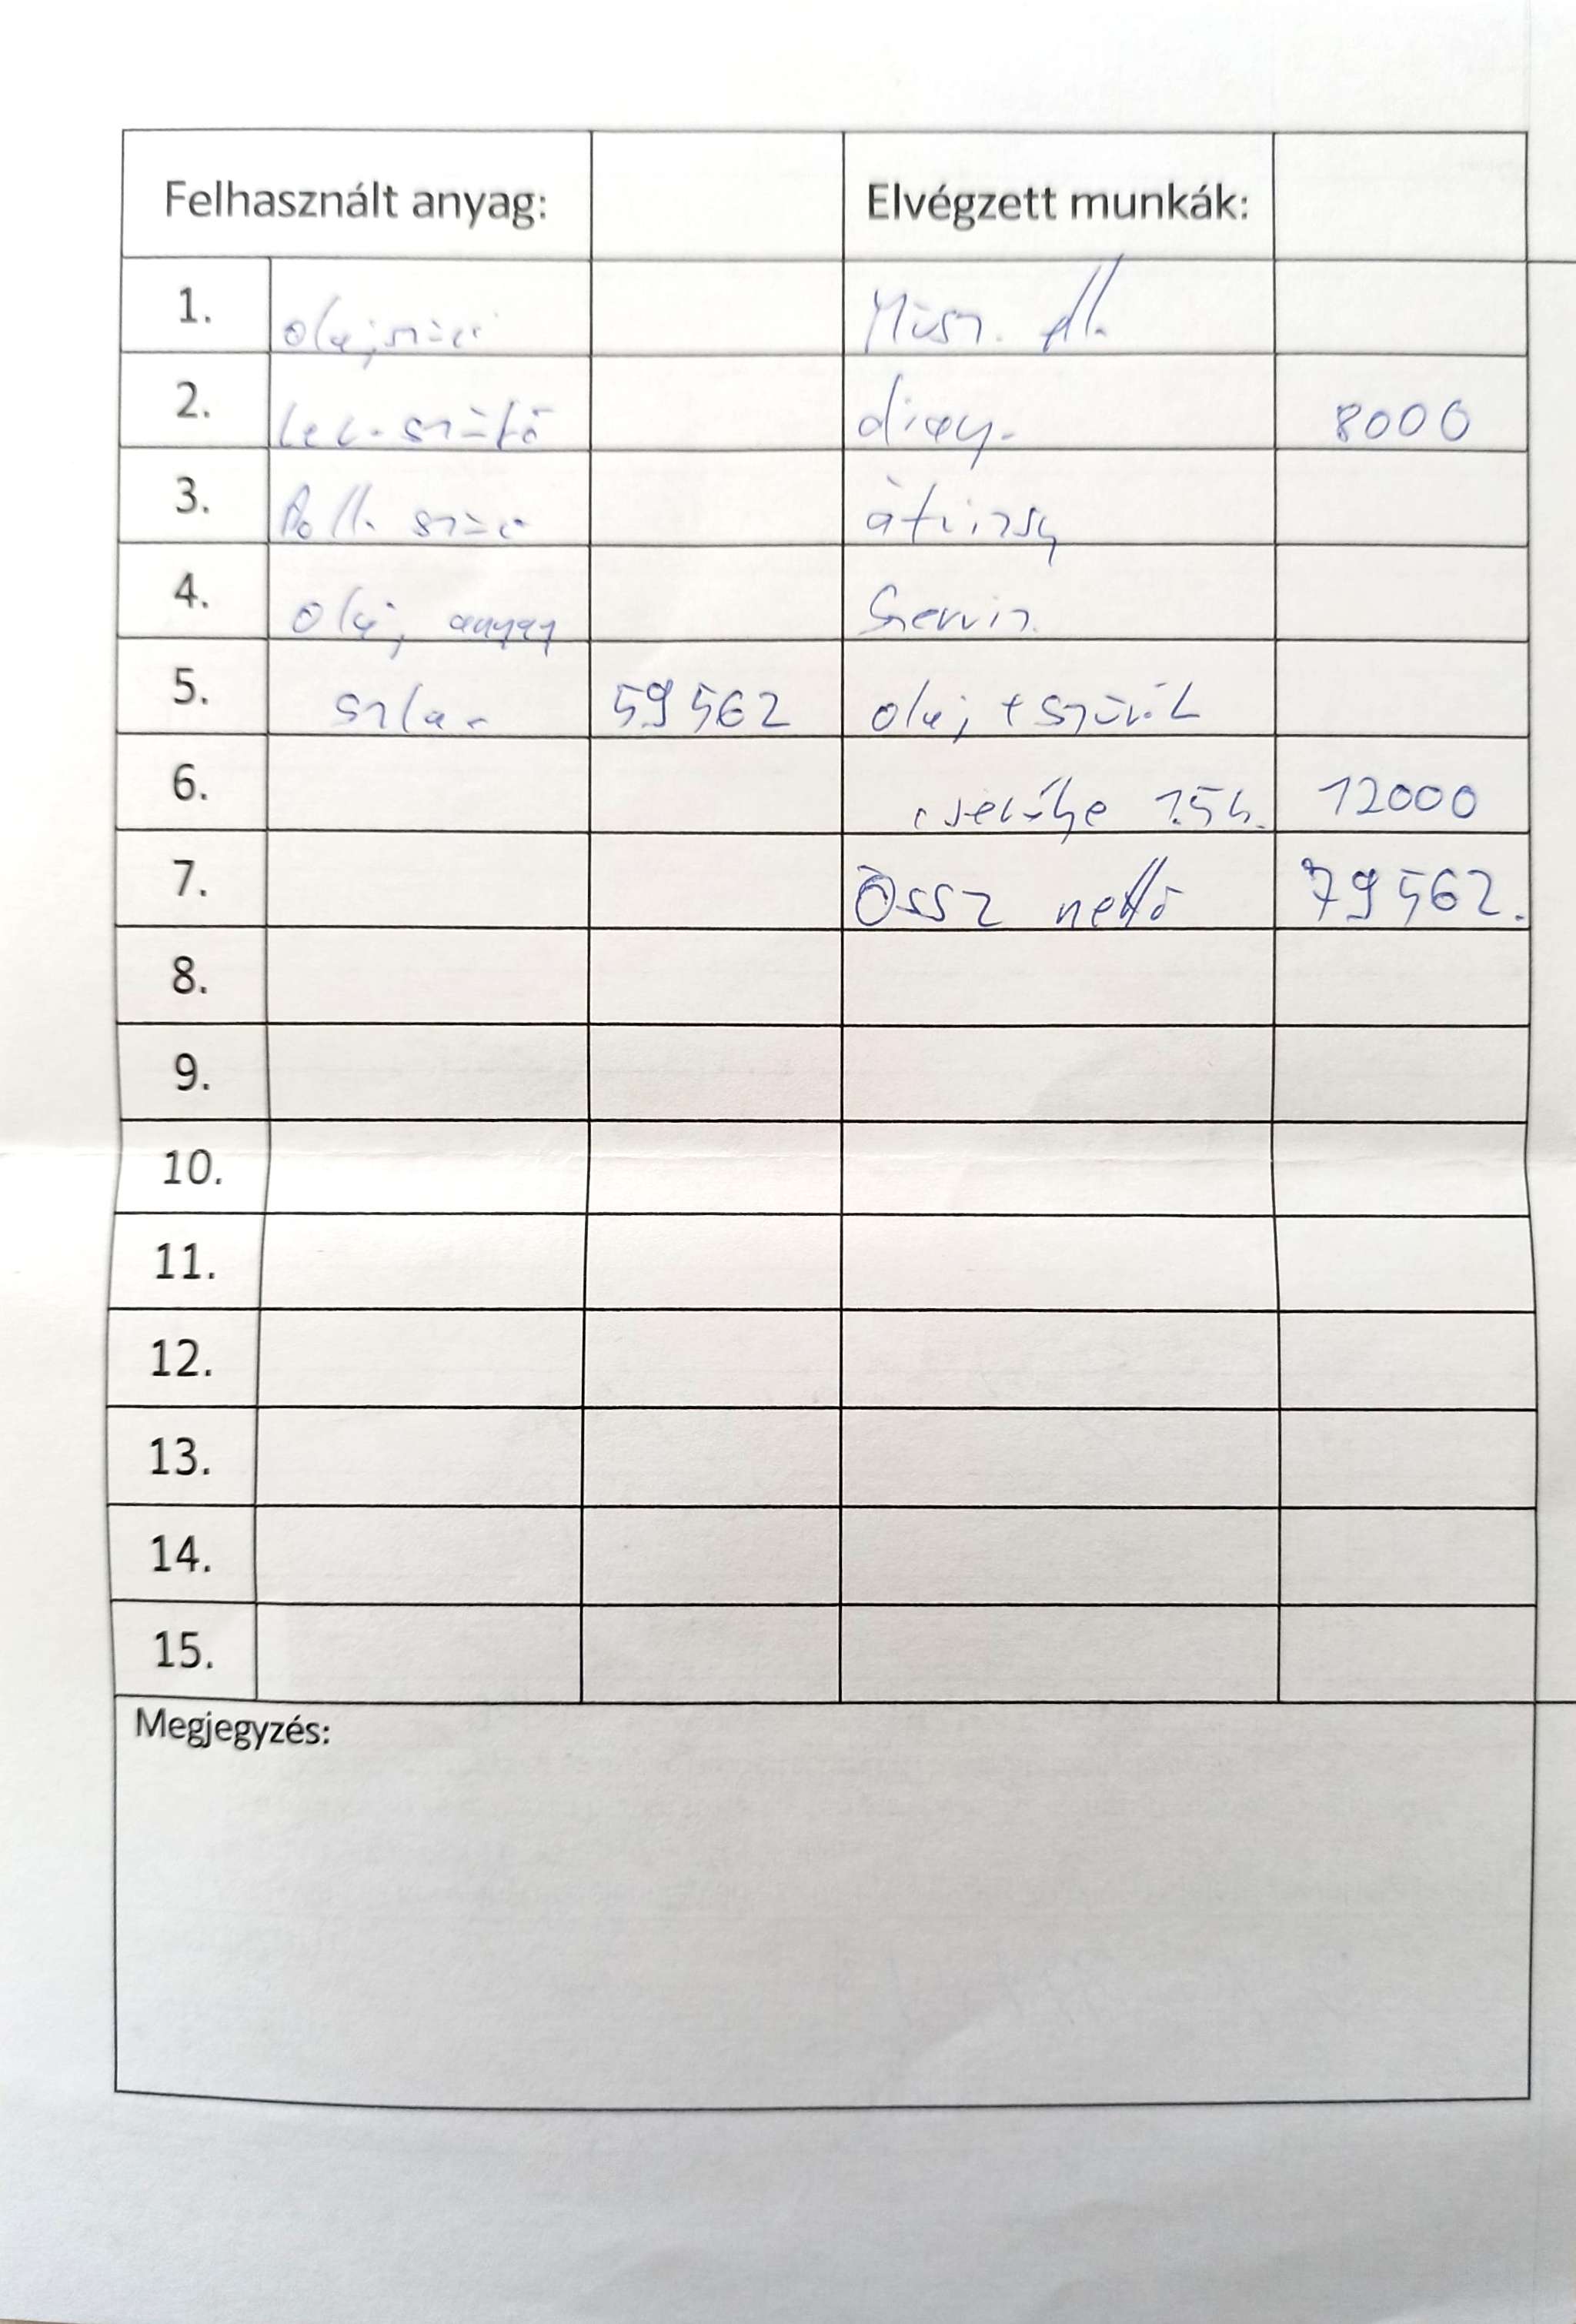 Felhasznált anyag: Elvégzett munkák:
1. olajszűrő Műsz. áll.
2. lev. szűrő diag. 8000
3. Poll. szűrő átvizsg
4. olaj, anyag Szerviz
5. szla 59562 olaj + szűrők
6. cseréje 1.5h. 12000
7. Össz nettó 79562.
8.
9.
10.
11.
12.
13.
14.
15.
Megjegyzés: